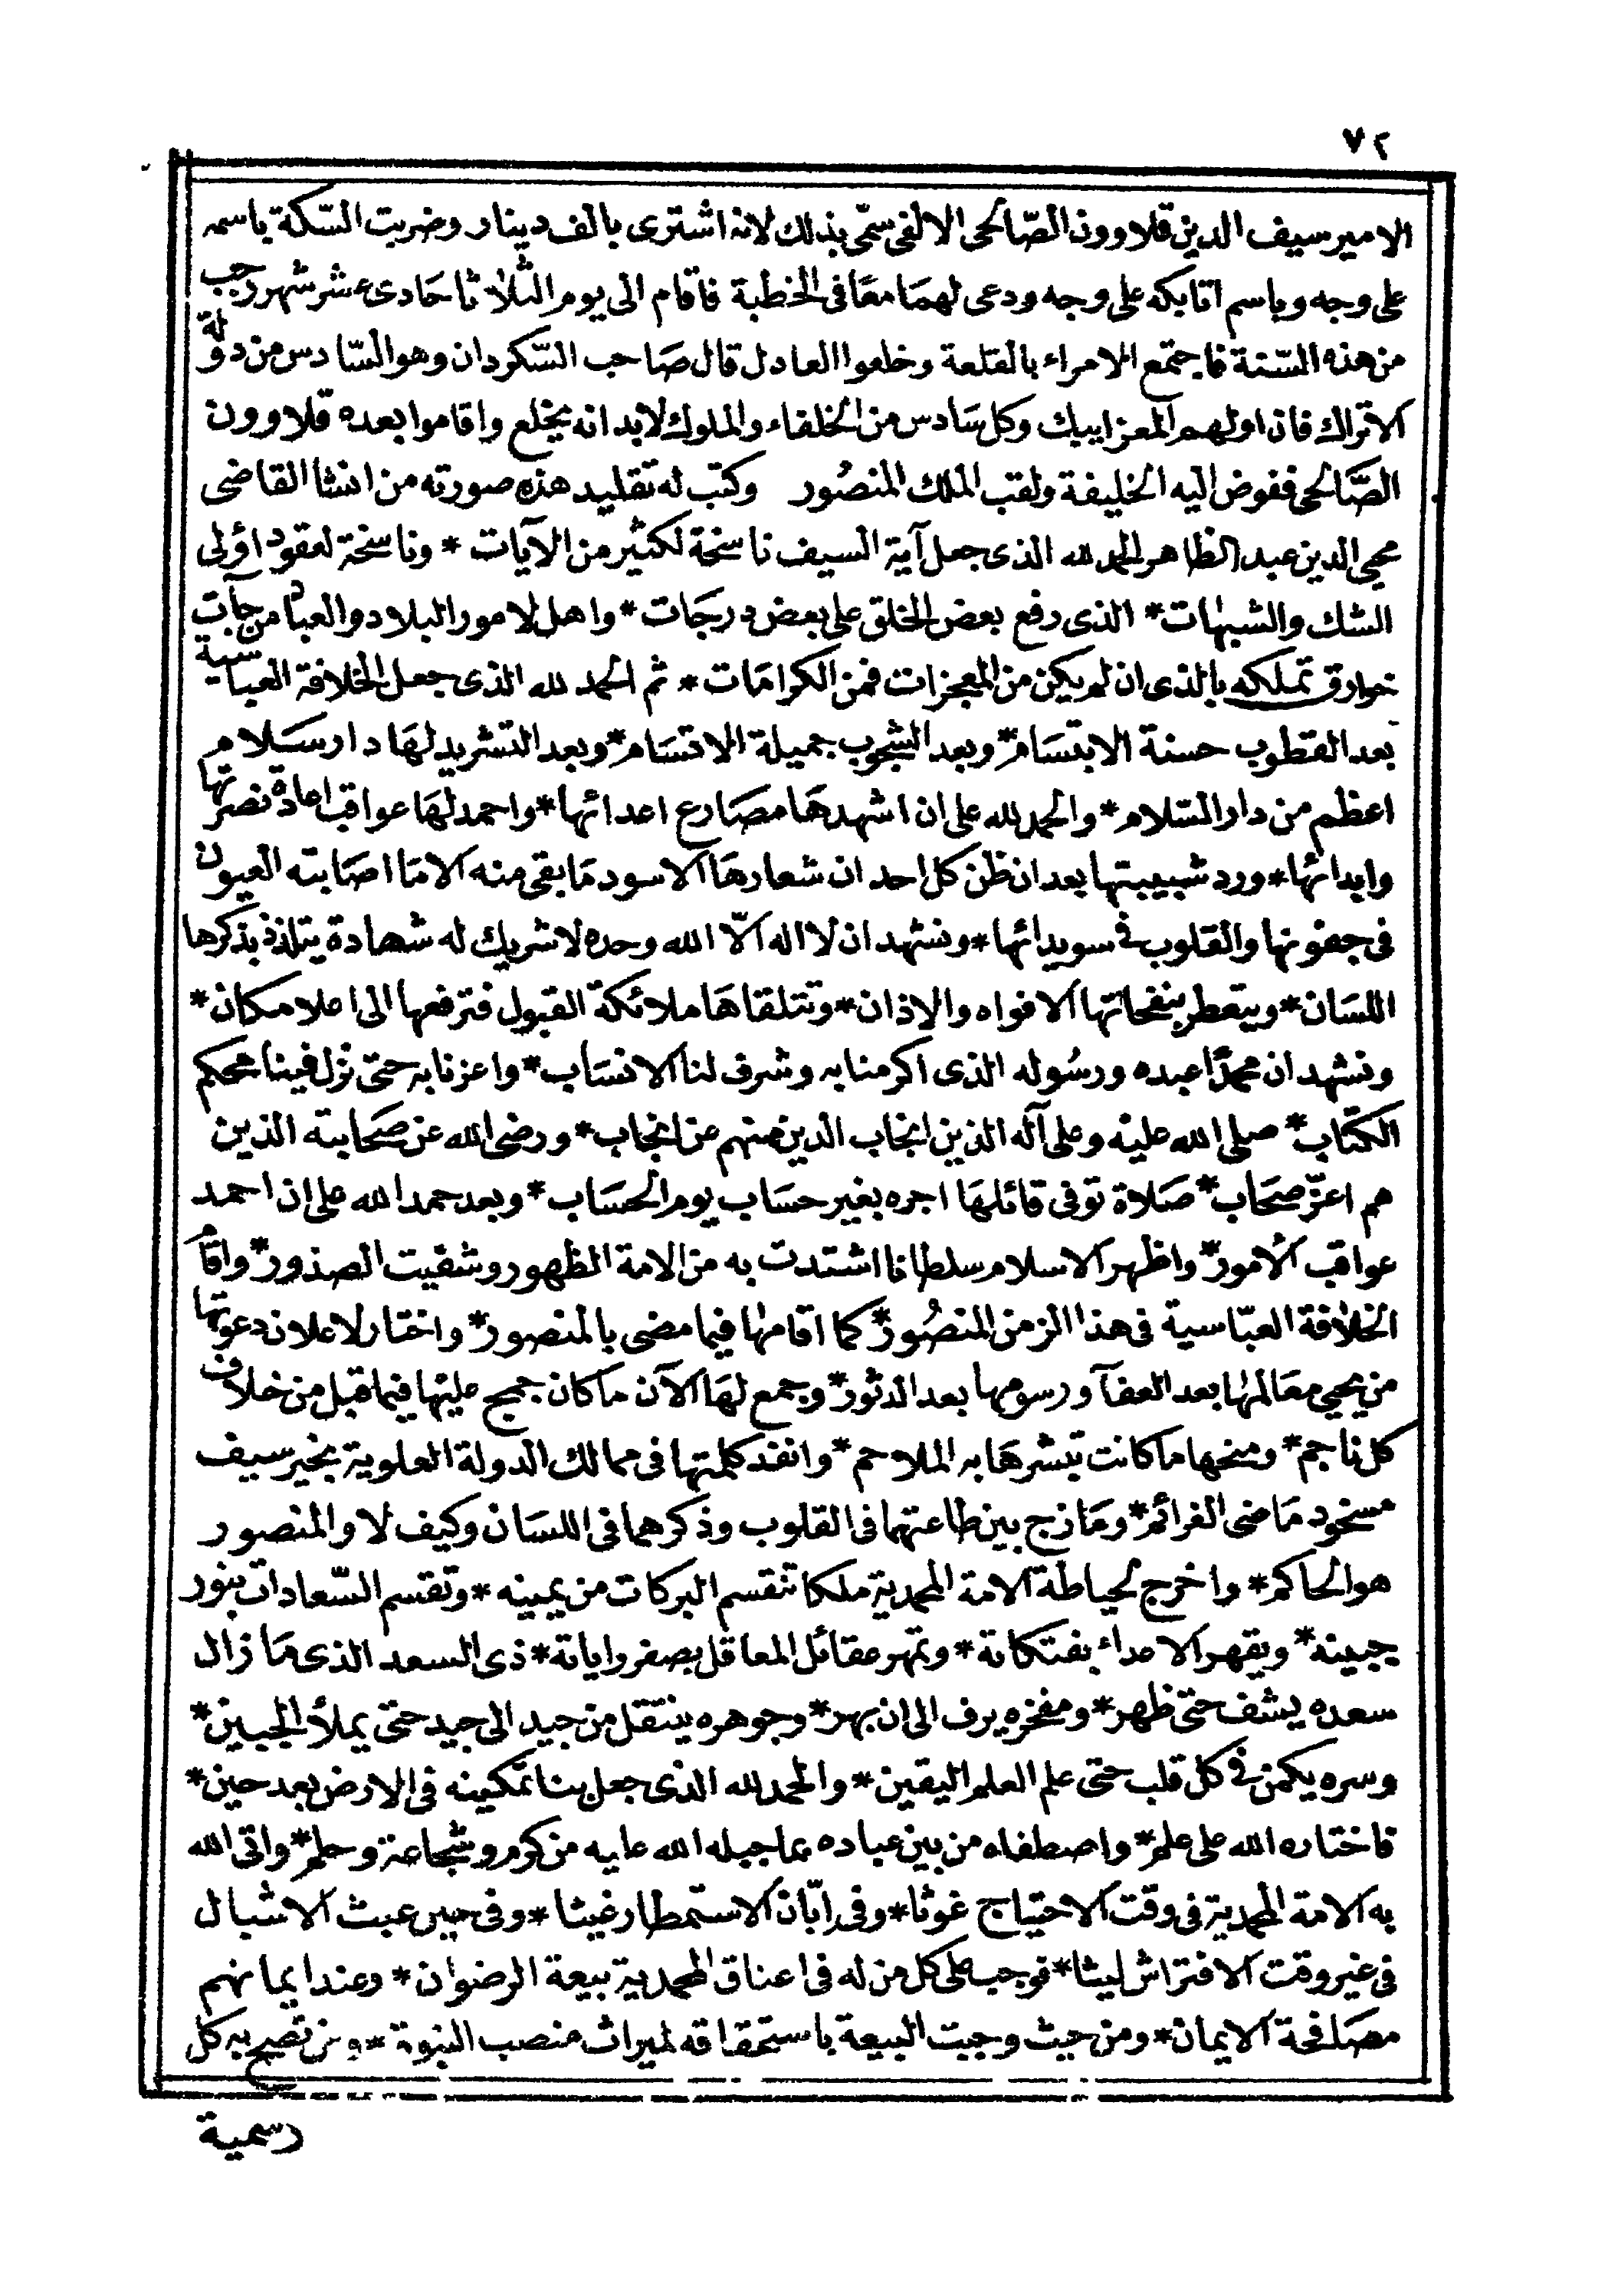 ٧٢
الامير سيف الدين قلاوون الصّالحى الالفى سمّى بذلك لانه اشترى بالف دينار وضربت السّكة باسمه
على وجه وباسم اتابكه على وجه ودعى لهما معًا فى الخطبة فاقام الى يوم الثلاثا حادى عشر شهر رجب
من هذه السّنة فاجتمع الامراء بالقلعة وخلعوا العادل قال صاحب السّكردان وهو السّادس من دولة
الاتراك فان اولهم المعز ايبك وكل سَادس من الخلفاء والملوك لابد انه يخلع واقاموا بعده قلاوون
الصَّالحى ففوض اليه الخليفة ولقب الملك المنصُور وكتب له تقليد هذه صورته من انشا القاضى
محيى الدين عبد الظاهر الحمد لله الذى جعل آية السيف ناسخة لكثير من الآيات * وناسخة لعقود اولى
الشك والشبهات * الذى رفع بعض الخلق على بعض درجَات * واهل لامور البلاد والعباد من جآت
خوارق تملكه بالذى ان لم يكن من المعجزات فمن الكرامَات * ثم الحمد لله الذى جعل الخلافة العباسية
بعد القطوب حسنة الابتسَام * وبعد الشحوب جميلة الاتسَام * وبعد التشريد لهَا دار سَلام
اعظم من دار السّلام * والحمد لله على ان اشهدهَا مصَارع اعدائها * واحمد لهَا عواقب اعادة نصرتها
وابدائها * ورد شبيبتها بعد ان ظن كل احد ان شعارهَا الاسود مَا بقى منه الا مَا اصَابته العيون
فى جفونها والقلوب فى سويدائها * ونشهد ان لا اله الّا الله وحده لا شريك له شهادة يتلذذ بذكرها
اللسَان * ويتعطر بنفحاتها الافواه والاذان * وتتلقاهَا ملائكة القبول فترفعها الى اعلا مكان *
ونشهد ان محمدًا عبده ورسُوله الذى اكرمنا به وشرف لنا الانسَاب * واعزنا به حتى نزل فينا محكم
الكتاب * صلى الله عليه وعلى آله الذين انجاب الدين منهم عن انجاب * ورضى الله عن صحَابته الذين
هم اعزّ صحَاب * صَلاة توفى قائلهَا اجره بغير حسَاب يوم الحسَاب * وبعد حمد الله على ان احمد
عواقب الأمور * واظهر الاسلام سلطانا اشتدت به من الامة الظهور وشفيت الصذور * واقام
الخلافة العبّاسية فى هذا الزمن المنصُور * كما اقامها فيما مضى بالمنصور * واختار لاعلان دعوتها
من يحيى معَالمها بعد العفآ ورسومها بعد الدثور * وجمع لهَا الآن ماكان جمح عليها فيما قبل من خلاف
كل ناجم * ومنحها ماكانت تبشرهَا به الملاحم * وانفذ كلمتها فى ممالك الدولة العلوية بخير سيف
مسخود مَاضى الغرائم * ومَازج بين طاعتهما فى القلوب وذكرهما فى اللسَان وكيف لا والمنصور
هو الحاكم * واخرج لحياطة الامة المحمدية ملكا تنقسم البركات من يمينه * وتقسم السّعادات بنور
جبينه * ويقهر الاعداء بفتكاته * وتمهر عقائل المعاقل بصفر راياتة * ذى السعد الذى مَا زال
سعده يشف حتى ظهر * ومفخره يرف الى ان بهر * وجوهره ينتقل من جيد الى جيد حتى يملأ الجبين *
وسره يكمن فى كل قلب حتى علم العلم اليقين * والحمد لله الذى جعل بنا تمكينه فى الارض بعد حين *
فاختاره الله على علم * واصطفاه من بين عباده بما جبله الله عليه من كرم وشجاعة وحلم * واتى الله
به الامة المحمدية فى وقت الاحتياج غوثا * وفى ابّان الاستمطار غيثا * وفى حين عبث الاشبال
فى غير وقت الافتراش ليثا * فوجب على كل من له فى اعناق المحمدية بيعة الرضوان * وعند ايمانهم
مصَافحة الايمان * ومن حيث وجبت البيعة باستحقاقه لميراث منصب النبوة * ومن تصح به كل
رسمية